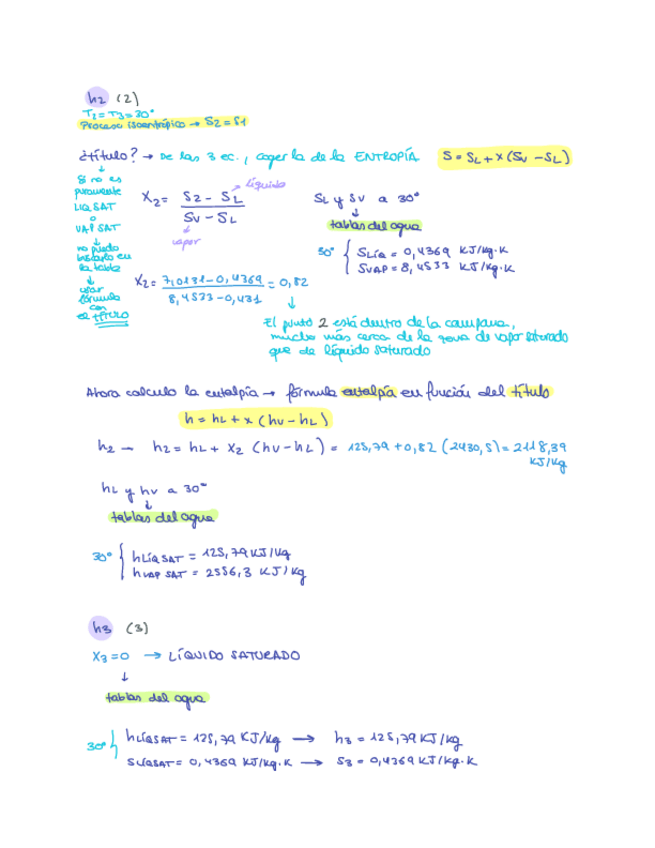 h2 (2)
T2 = T3 = 30°
Proceso isoentrópico → S2 = S1
¿título? → De las 3 ec., coger la de la ENTROPÍA S = SL + x (Sv - SL)
↓
Si no es
puramente
LIQ SAT
o
VAP SAT
↓
no puedo
mirarlo en
la tabla
↓
usar
fórmula
con
el título
X2 = S2 - SL / Sv - SL
líquido
vapor
X2 = 7,0131 - 0,4369 / 8,4533 - 0,431 = 0,82
SL y Sv a 30°
↓
tablas del agua
30° { SLíq = 0,4369 KJ/kg·K
SVAP = 8,4533 KJ/kg·K
↓
El punto 2 está dentro de la campana,
mucho más cerca de la zona de vapor saturado
que de líquido saturado
Ahora calculo la entalpía → fórmula entalpía en función del título
h = hL + x (hv - hL)
h2 → h2 = hL + X2 (hv - hL) = 125,79 + 0,82 (2430,5) = 2118,39
KJ/kg
hL y hv a 30°
↓
tablas del agua
30° { hLíqSAT = 125,79 KJ/kg
hVAP SAT = 2556,3 KJ/kg
h3 (3)
X3 = 0 → LÍQUIDO SATURADO
↓
tablas del agua
30° } hLíqSAT = 125,79 KJ/kg → h3 = 125,79 KJ/kg
SLíqSAT = 0,4369 KJ/kg·K → S3 = 0,4369 KJ/kg·K